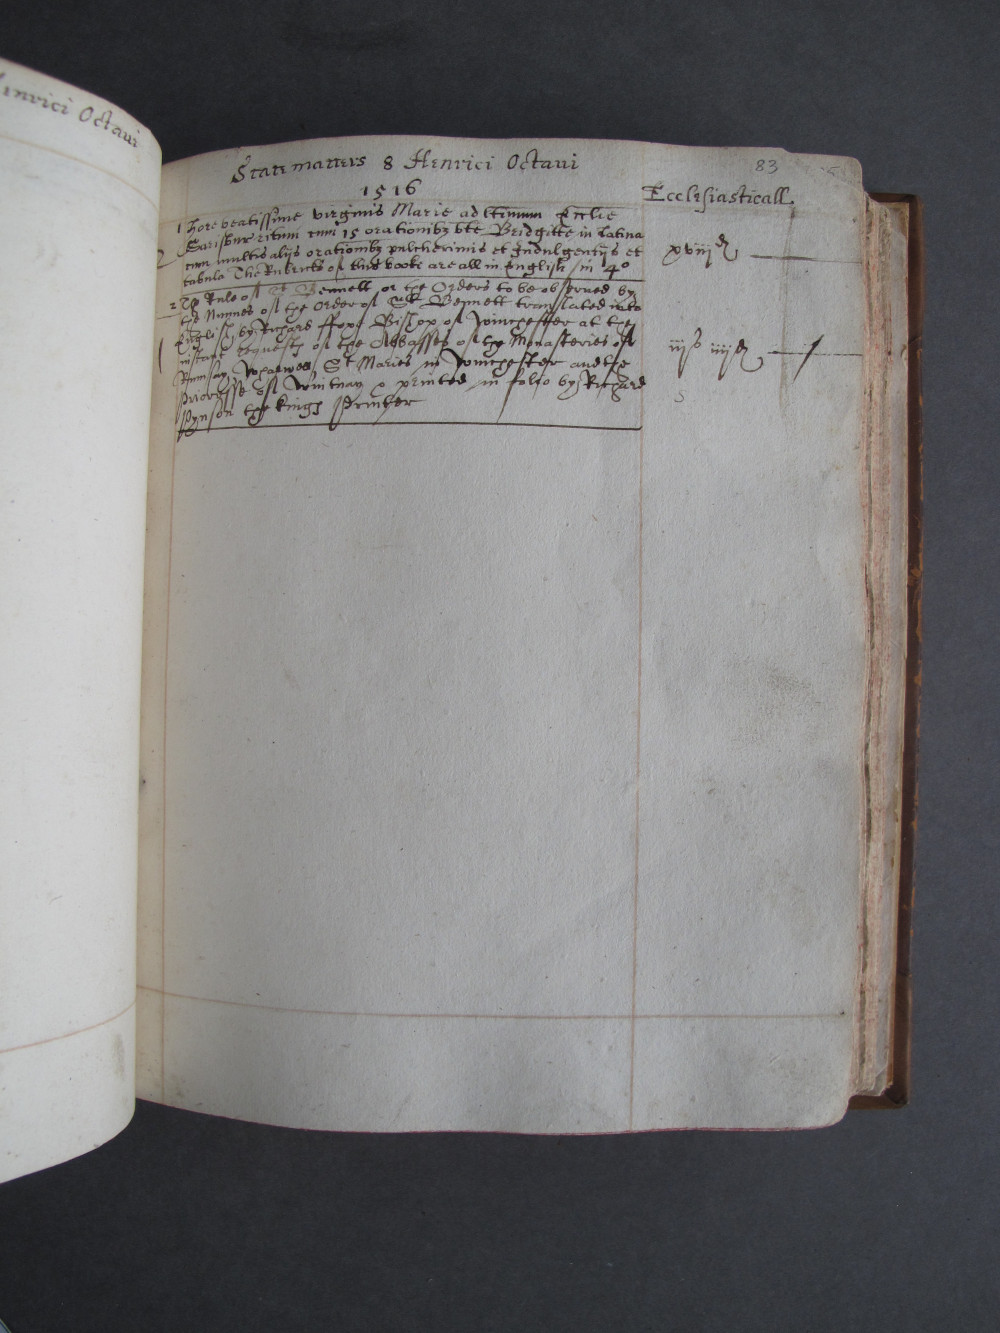 Henrici Octaui
State matters 8 Henrici Octaui
83
1516
Ecclesiasticall
1 Hore beatissime virginis Marie ad ltimum Ecclie
Sarisbur ritum cum 15 orationibz bte Bridgitte in latina
2 cum multis alijs orationibz pulcherimis et Indulgentijs et
xviijd
tabula The Rubricks of this booke are all in English in 4o
2 The Rule of St Bennett or the Orders to be obserued by
the Nunnes of the Order of St Bennett translated into
English by Richard ffox Bishop of Winchester at the
instant request of the Abbasses of the Monasteries of
iijs iiijd
Rumsay Wharwel St Maries in Winchester and the
Prioresse of Wintnay & printed in folio by Richard
Pynson the Kings Printer